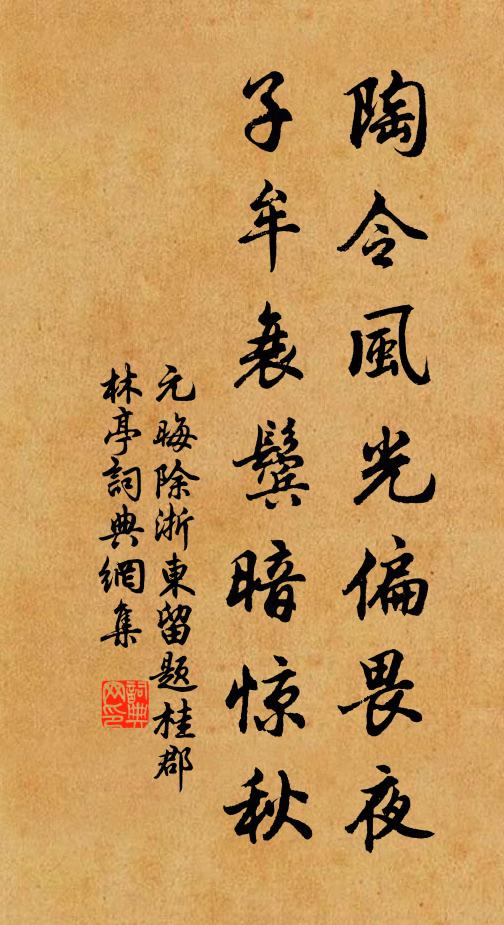 陶令風光偏畏夜
子牟衰鬓暗惊秋
元晦除浙東留題桂郡
林亭詞典網集
詞典
网印